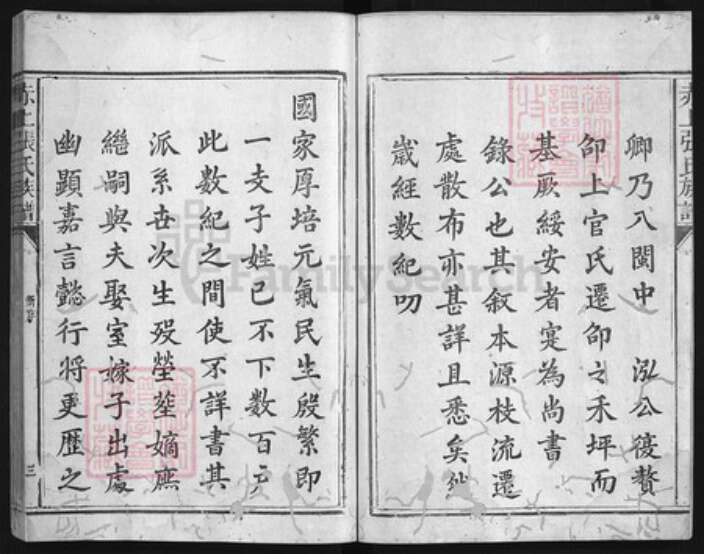 赤上張氏族譜
卿乃入閩中 泓公復贅
邵上官氏遷邵之禾坪而
基厥綏安者寔為尚書
錄公也其叙本源枝流遷
處散布亦甚詳且悉矣玅
嵗經數紀叨
國家厚培元氣民生殷繁即
一支子姓已不下數百
此數紀之間使不詳書其
派系世次生殁塋葬嫡庶
繼嗣與夫娶室嫁子出處
幽顯嘉言懿行將更歷之
赤上張氏族譜
三
FamilySearch